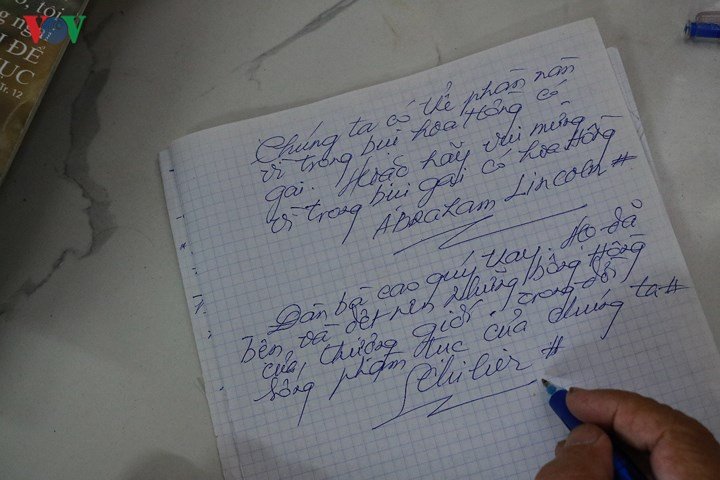 VOV
ó, tôi
g nghi
ĐỂ
ỤC
Tr. 12
Chúng ta có thể phàn nàn
vì trong bụi hoa Hồng có
gai. Hoặc hãy vui mừng
vì trong bụi gai có hoa Hồng
Abraham Lincoln #
Đàn bà cao quý thay. Họ đã
bện và dệt nên những bông Hồng
của, thượng giới, trong đời
sống phàm tục của chúng ta #
Schiller #